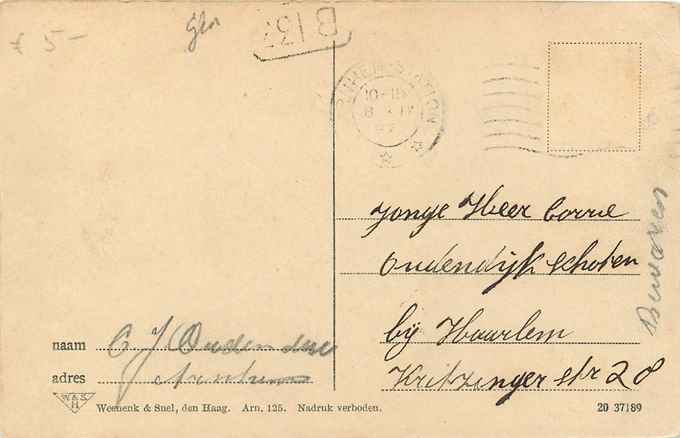 * 5-
B 13
STATION
Jonge Heer Corrie
Oudendijk Schoten
bij Haarlem
Kritzinger str 28
Bewaren
naam C J Oudendijk
adres Arnhem
W & S
H
Weenenk & Snel, den Haag. Arn, 125. Nadruk verboden.
20 37189